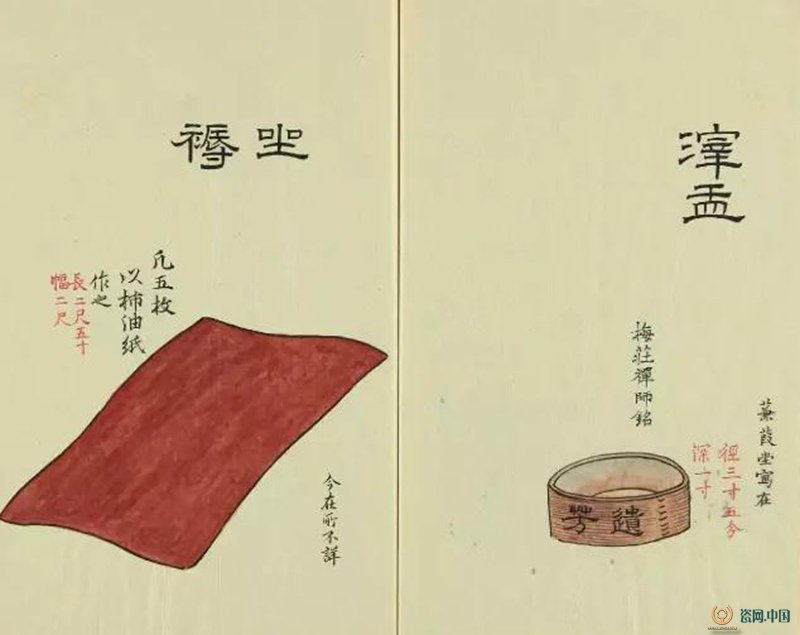 滓盂
蒹葭堂寫在
梅莊禪師銘
徑三寸五分
深一寸
遺芳
坐褥
凡五枚
以柿油紙
作之
長二尺五寸
幅二尺
今在所不詳
瓷网.中国